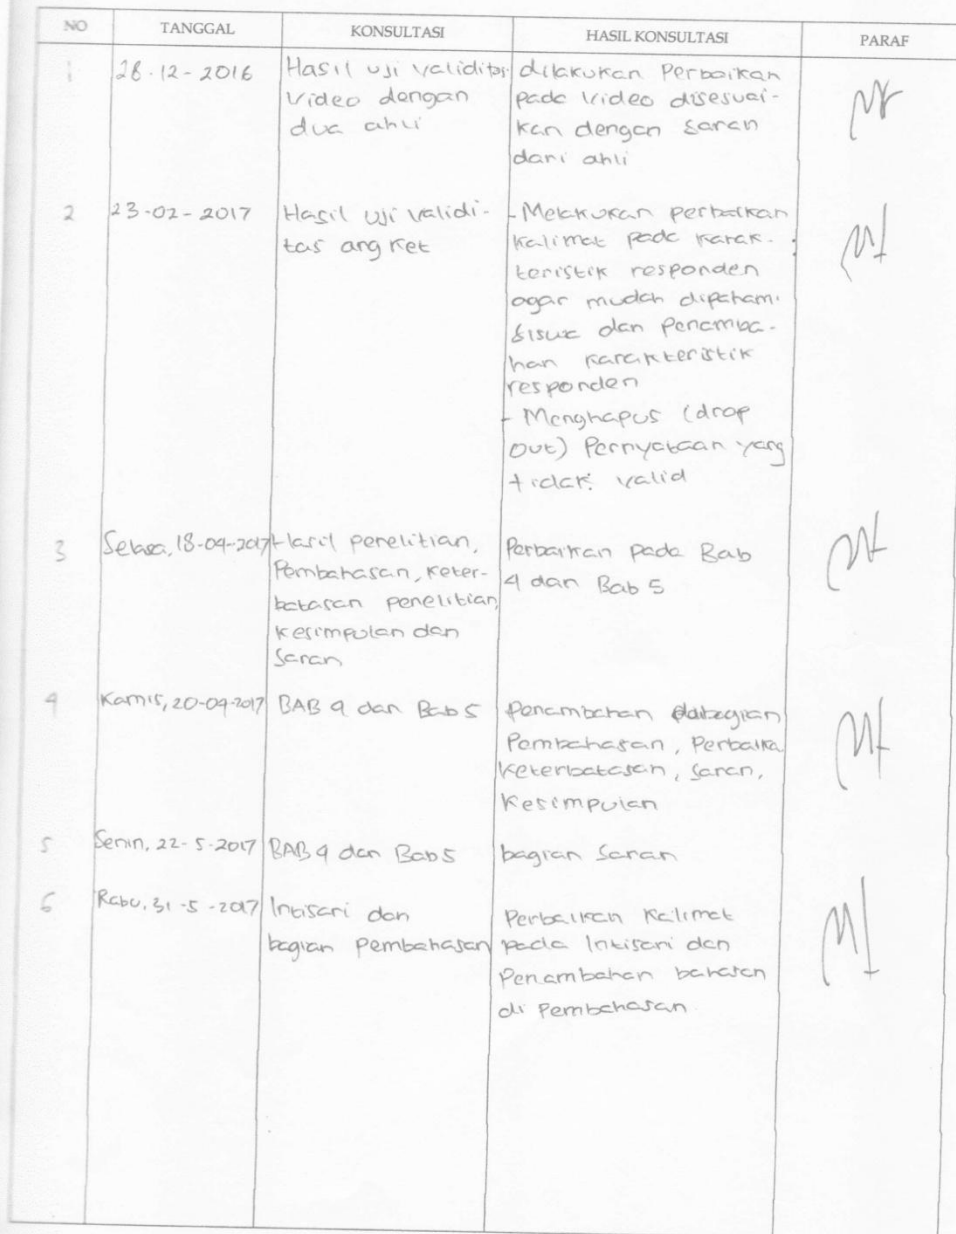 NO TANGGAL KONSULTASI HASIL KONSULTASI PARAF
1 28-12-2016 Hasil uji validitas dilakukan Perbaikan
Video dengan pada Video disesuai-
dua ahli kan dengan saran
dari ahli
2 23-02-2017 Hasil uji validi- - Melakukan perbaikan
tas angket kalimat pada karak-
teristik responden
agar mudah dipahami
siswa dan Penamba-
han karakteristik
responden
- Menghapus (drop
out) Pernyataan yang
tidak valid
3 Selasa, 18-04-2017 Hasil penelitian, Perbaikan pada Bab
Pembahasan, keter- 4 dan Bab 5
batasan penelitian,
kesimpulan dan
Saran
4 Kamis, 20-04-2017 BAB 4 dan Bab 5 Penambahan dibagian
Pembahasan, Perbaika
Keterbatasan, Saran,
Kesimpulan
5 Senin, 22-5-2017 BAB 4 dan Bab 5 bagian Saran
6 Rabu, 31-5-2017 Intisari dan Perbaikan Kalimat
bagian Pembahasan pada Intisari dan
Penambahan bahasan
di Pembahasan.